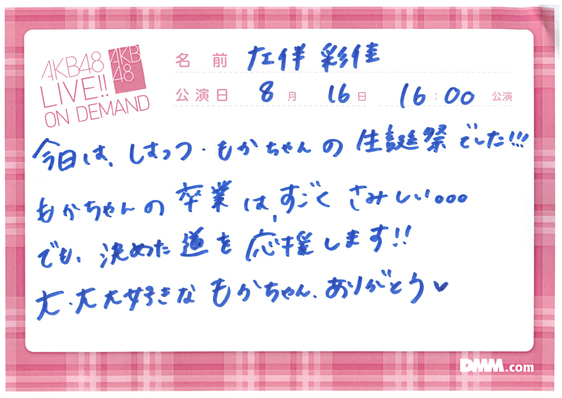 AKB48
LIVE!!
ON DEMAND
AKB
48
名前 左伴 彩佳
公演日 8月 16日 16:00 公演
今日は、しまっつ・もかちゃんの 生誕祭でした!!!
もかちゃんの 卒業は、すごく さみしい。。。
でも、決めた 道を 応援します!!
大・大大好きな もかちゃん、ありがとう♥
DMM.com